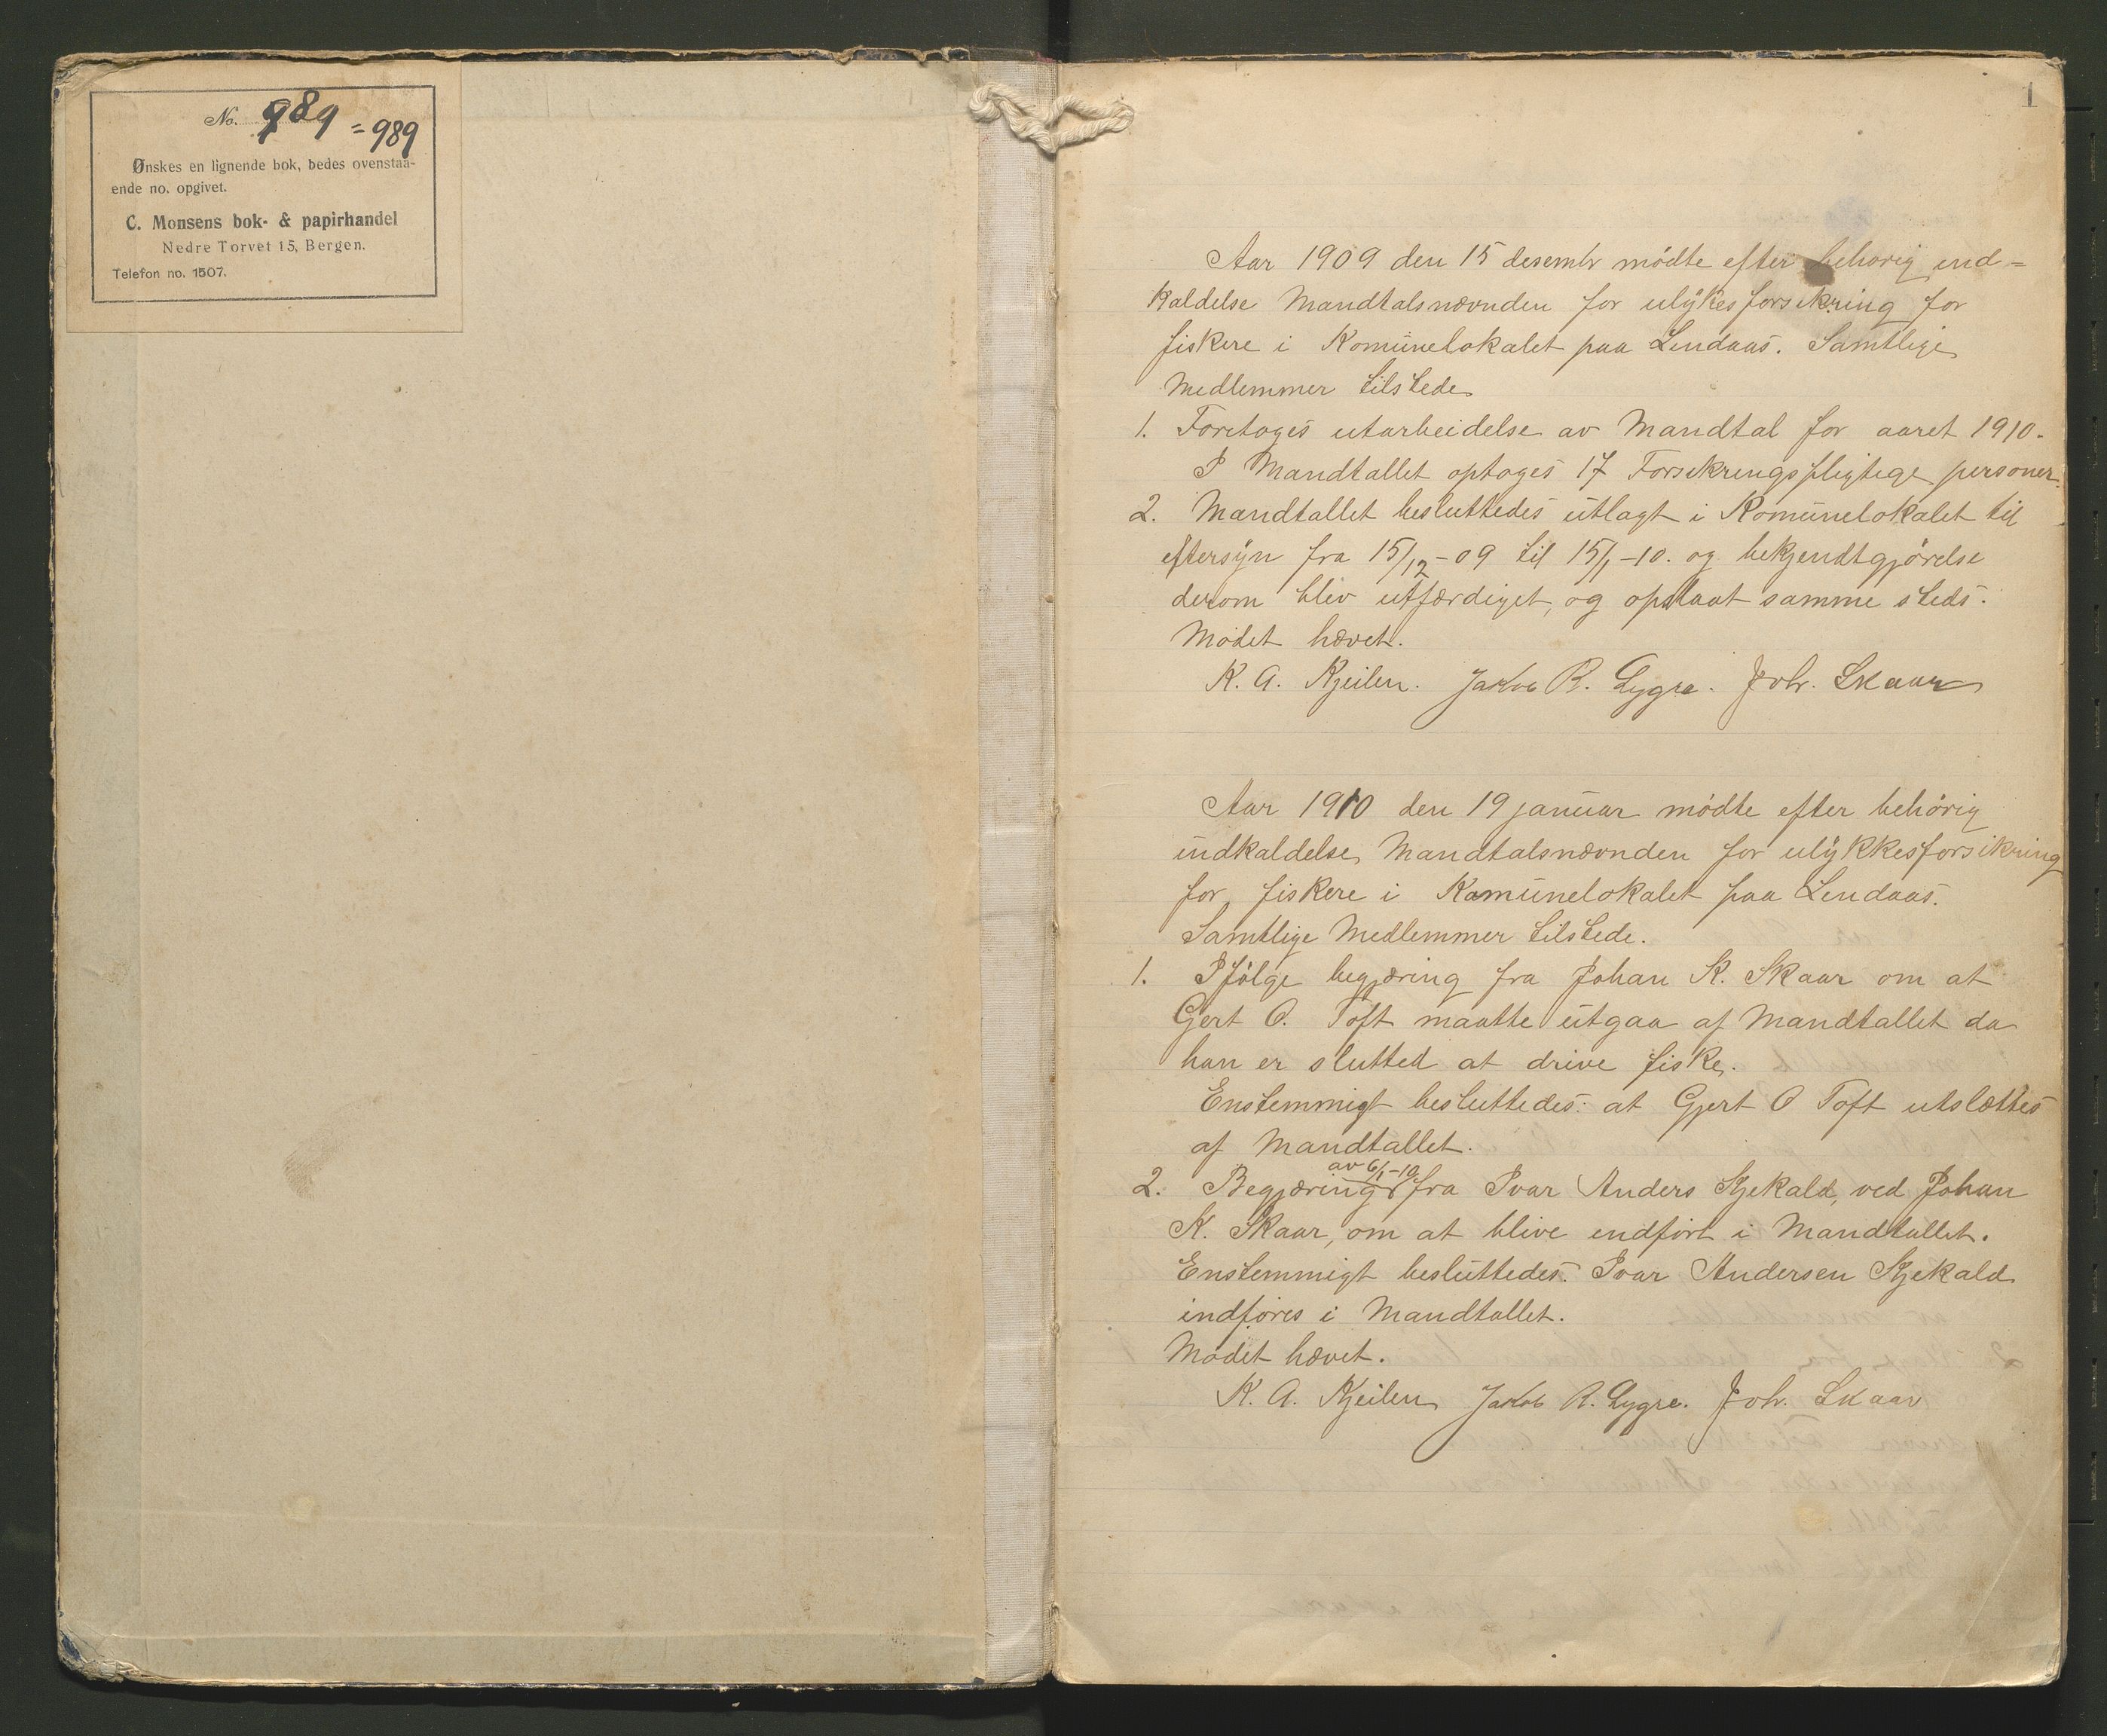 No. 989 = 989
Ønskes en lignende bok, bedes ovenstaa-
ende no. opgivet.
C. Monsens bok- & papirhandel
Nedre Torvet 15, Bergen.
Telefon no. 1507.
1
Aar 1909 den 15 desembr mødte efter behørig ind=
kaldelse Mandtalsnævnden for ulykesforsikring for
fiskere i Komunelokalet paa Lindaas. Samtlige
Medlemmer tilstede
1. Foretoges utarbeidelse av Mandtal for aaret 1910.
I Mandtallet optoges 17 Forsikringspligtige personer.
2. Mandtallet besluttedes utlagt i Komunelokalet til
eftersyn fra 15/12-09 til 15/1-10. og bekjendtgjørelse
derom blev utfærdiget, og opslaat samme steds.
Mødet hævet.
K. A. Kjeilen. Jakob R. Lygre. Joh. Skaar
Aar 1910 den 19 januar mødte efter behörig
indkaldelse Mandtalsnævnden for ulykkesforsikring
for fiskere i Komunelokalet paa Lindaas.
Samtlige Medlemmer tilstede.
1. Ifölge begjæring fra Johan K. Skaar om at
Gert O. Toft maatte utgaa af Mandtallet da
han er slutted at drive fiske.
Enstemmigt besluttedes: at Gjert O Toft utslættes
af Mandtallet.
av 6/1-10
2. Begjæring fra Ivar Anders Kjekald, ved Johan
K. Skaar, om at blive indfört i Mandtallet.
Enstemmigt besluttedes: Ivar Andersen Kjekald
indføres i Mandtallet.
Mødet hævet.
K. A. Kjeilen Jakob R. Lygre. Joh. Skaar